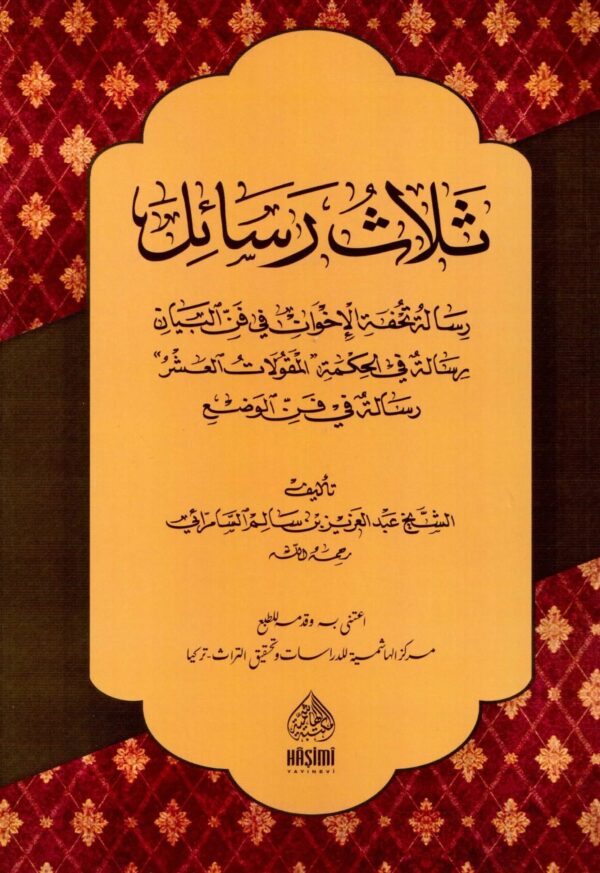 ثَلَاثُ رَسَائِلَ
رِسَالَةُ تُحْفَةِ الْإِخْوَانِ فِي فَنِّ الْبَيَانِ
رِسَالَةٌ فِي الْحِكْمَةِ "الْمَقُولَاتُ الْعَشْرُ"
رِسَالَةٌ فِي فَنِّ الْوَضْعِ
تأليف
الشَّيْخ عَبْد الْعَزِيز بْن سَالِم السَّامَرَّائِي
رحمه الله
اعتنى به وقدمه للطبع
مركز الهاشمية للدراسات وتحقيق التراث - تركيا
المكتبة الهاشمية
HÂŞİMÎ
YAYINEVİ